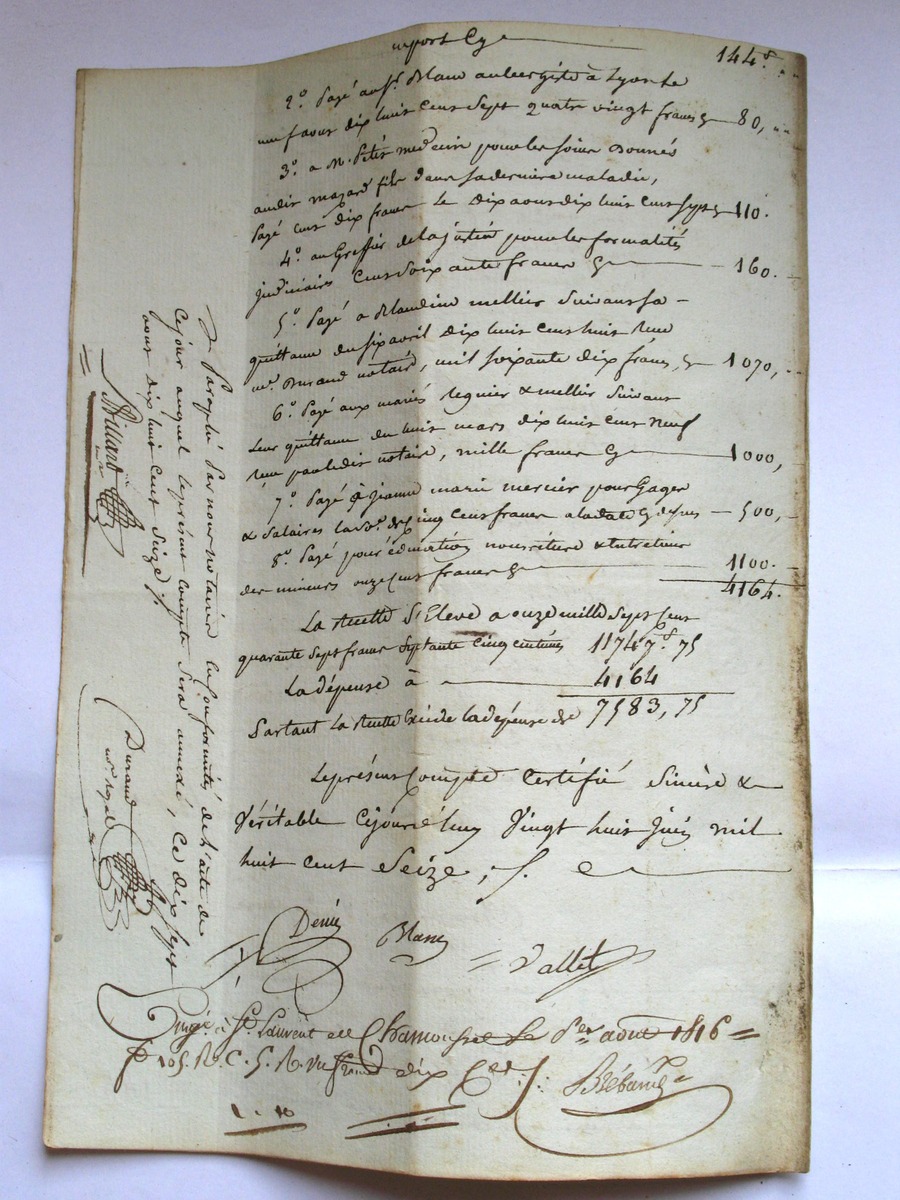 report Cy 144.
2º. Payé au Sr. Blanc aubergiste à Lyon le
neuf aoust dix huit cent Sept quatre vingt francs Cy 80,
3º. a M. Petit medecin pour les soins donnés
audit mazard fils dans sa derniere maladie,
Payé cent dix francs le dix aoust dix huit cent sept 110.
4º. au Greffier de la justice pour les formalités
judiciaires Cent Soixante francs Cy 160.
5º. Payé a Blandine mellier Suivant sa
quittance du six avril dix huit cent huit Reçu
me. Durand notaire, mil soixante dix francs, Cy 1070,
6º. Payé aux mariés regnier & mellier Suivant
leur quittance du huit mars dix huit cent Neuf
Reçu notaire, mille francs Cy 1000,
7º. Payé à jeanne marie mercier pour Gages
& Salaires cinq Cens francs 500,
8º. Payé pour éducation nourriture & Entretien
des mineurs onze Cens francs Cy 1100.
4164.
La Recette S'Eleve a onze mille Sept Cent
quarante Sept francs Septante Cinq centimes 11747. 75
La dépense à 4164
Partant La Recette Excède la dépense de 7583,75
Le présent Compte Certifié Sincère &
Véritable Cejourd'huy Vingt huit Juin mil
huit cent Seize,
Denis Blanc Vallet
à St. Laurent de Chamousset le 1er aout 1816
fo 105. R. C. 5. R. un franc dix
1. 10
Paraphé Par nous notaire En Conformité de l'acte de
Cejour auquel le présent compte Sera annexé, Ce dix Sept
aout dix huit Cent Seize
Durand